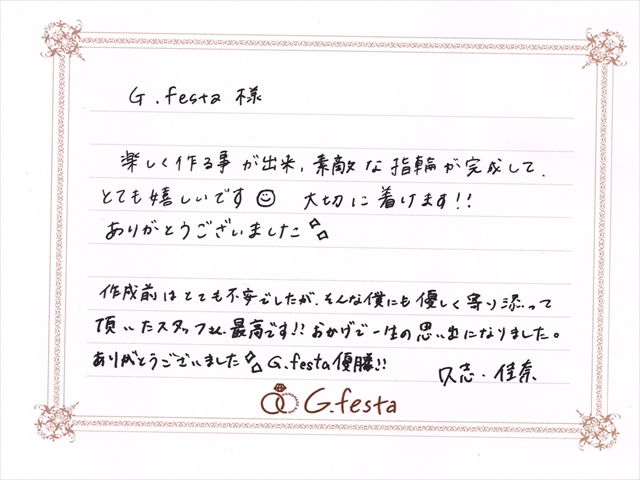 G.festa 様
楽しく作る事が出来、素敵な指輪が完成して、
とても嬉しいです☺ 大切に着けます!!
ありがとうございました
作成前はとても不安でしたが、そんな僕にも優しく寄り添って
頂いたスタッフさん最高です!! おかげで一生の思い出になりました。
ありがとうございました G.festa優勝!!
久志・佳奈
G.festa